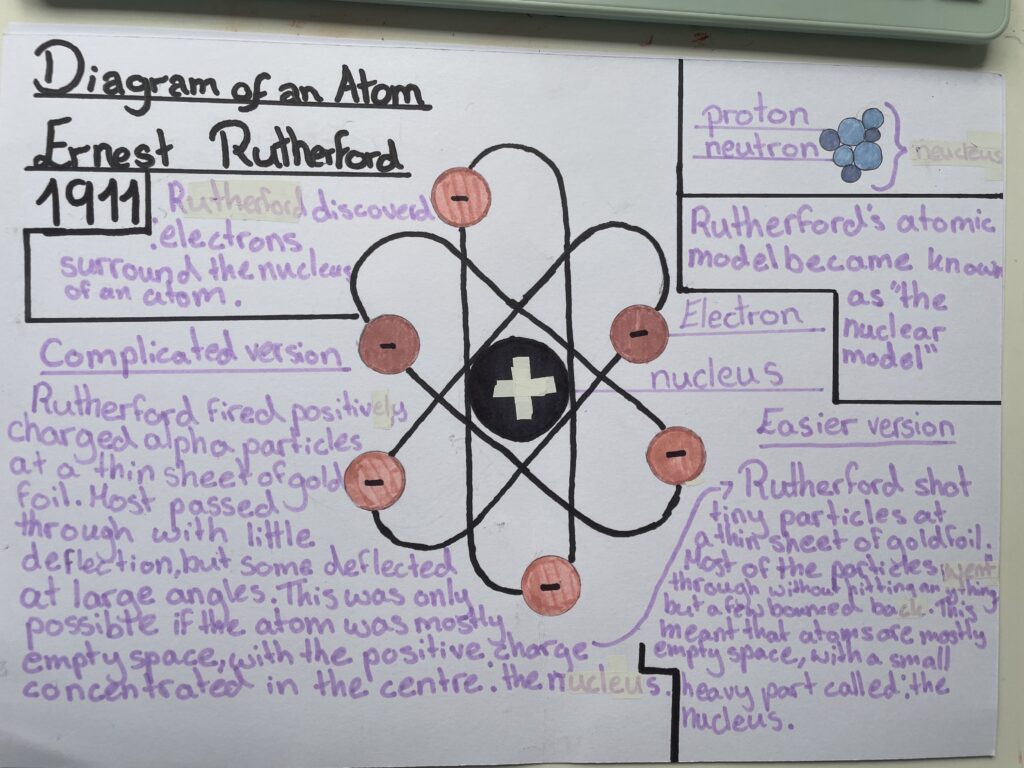 Diagram of an Atom
Ernest Rutherford
1911
Rutherford discoverd
electrons
surround the nucleus
of an atom.
proton
neutron
neucleus
Rutherford's atomic
model became known
as "the
nuclear
model"
Electron
nucleus
Complicated version
Rutherford fired positively
charged alpha particles
at a thin sheet of gold
foil. Most passed
through with little
deflection, but some deflected
at large angles. This was only
possible if the atom was mostly
empty space, with the positive charge
concentrated in the centre. the nucleus.
Easier version
Rutherford shot
tiny particles at
a thin sheet of goldfoil.
Most of the particles went
through without hitting anything
but a few bounced back. This
meant that atoms are mostly
empty space, with a small
heavy part called: the
nucleus.
- 
- 
- 
- 
- 
- 
+